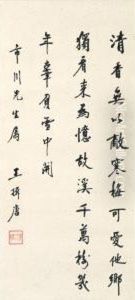 清香無以敵寒梅可愛他鄉
獨看來為憶故溪千萬樹幾
年辜負雪中開
市川先生屬
王揖唐